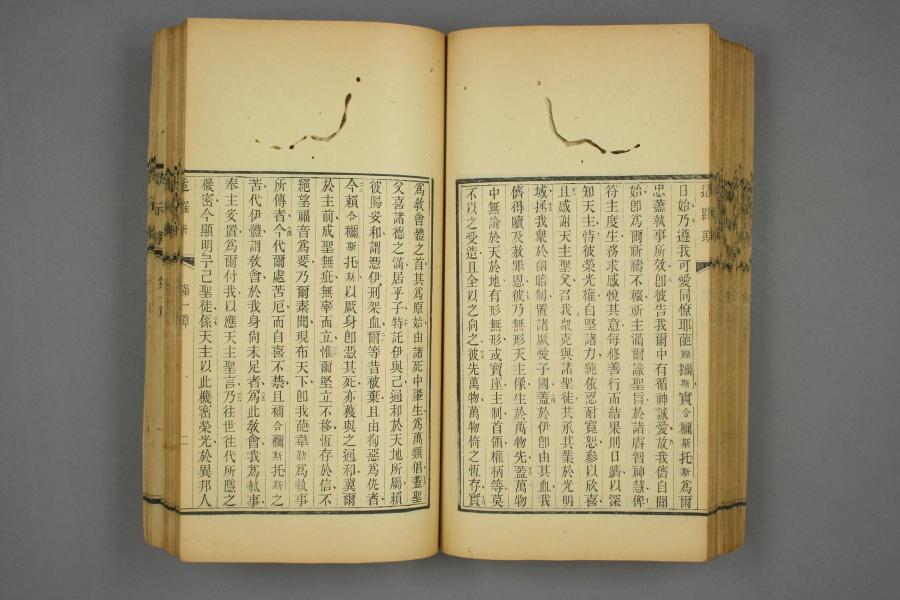 日始乃遵我可愛同僚耶葩斯實合𧝞斯托斯爲爾
忠藎執事所效卽彼告我爾中有循神誠愛故我儕自聞
始卽爲爾祈禱不輟祈主滿爾識聖旨於諸睿智神慧俾
符主度生務求感悅其意每修善行而結果則日躋以深
知天主恃彼榮光權自堅諸力毓依忍耐寬恕參以欣喜
且感謝天主聖父召我衆克與諸聖徒共承其業於光明
域拯我衆於幽暗制置諸厥愛子國蓋於伊卽由其血我
儕得贖及赦罪恩彼乃無形天主像生於萬物先蓋萬物
中無論於天於地有形無形或寶座主制首領權柄等莫
不以之受造且全以之向之彼先萬物萬物倚之恆存實
爲敎會體之首其爲原始由諸死中肇生爲萬類倡蓋聖
父喜諸德之滿居乎子特託伊與己過和於天地所屬賴
彼賜妥和謂憑伊刑架血爾等昔被棄且由徇惡爲仇者
今賴合𧝞斯托斯以厥身卽憑其死亦獲與之過和冀爾
於主前成聖無疵無辜而立惟爾堅立不移恆存於信不
絕望福音爲要乃爾素聞現布天下卽我葩韋勒爲執事
所傳者今代爾處苦厄而自喜不禁且補合𧝞斯托斯之
苦代伊體謂敎會於我身尙未足者爲此敎會我爲執事
奉主安置爲爾付我以應天主聖言乃往世往代所隱之
機密今顯明於己聖徒係天主以此機密榮光於異邦人
第一章
二